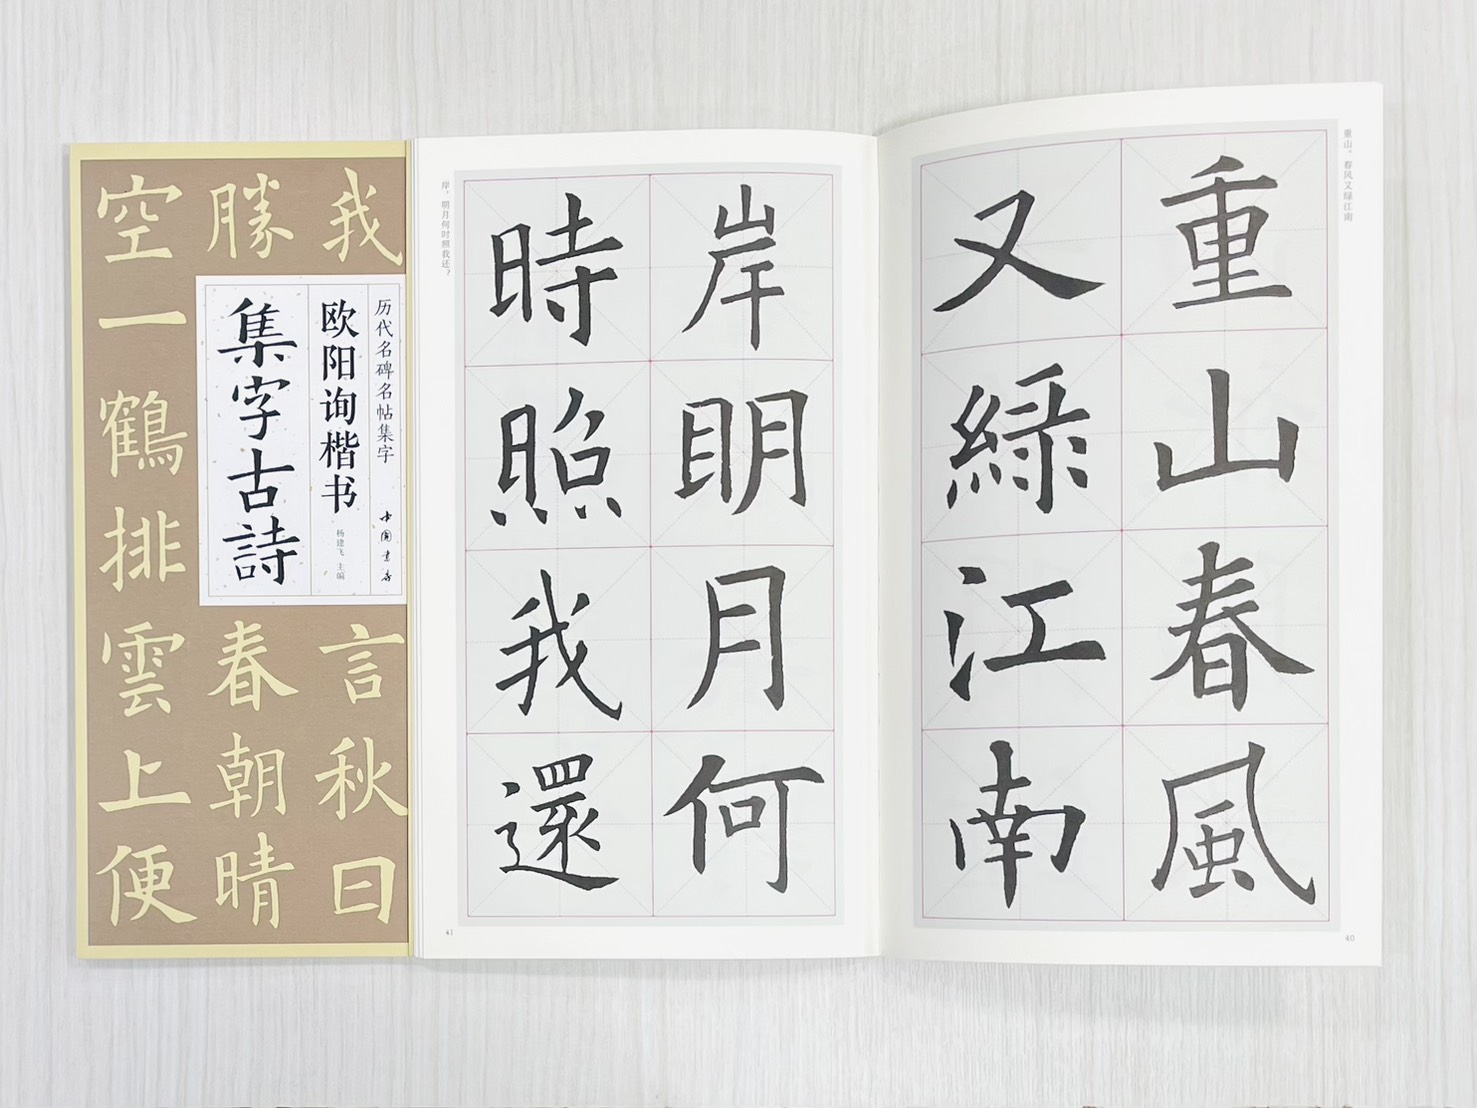 我言秋日
勝春朝晴
空一鶴排雲上便
历代名碑名帖集字
中国书店
欧阳询楷书
杨建飞 主编
集字古詩
重山。春风又绿江南
重山春風
又綠江南
40
岸明月何
時照我還
岸，明月何时照我还？
41